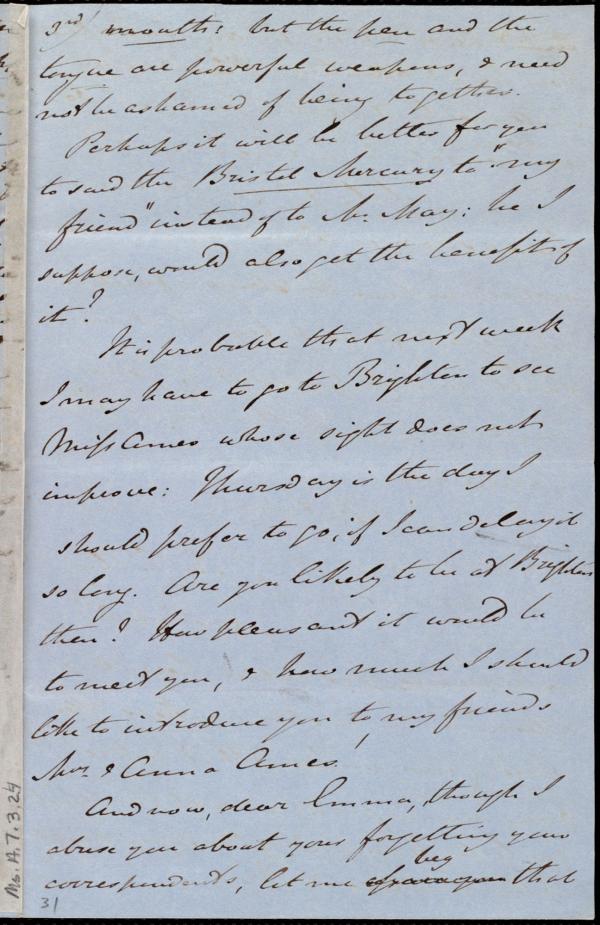 3rd mouths: but the pen and the
tongue are powerful weapons, & need
not be ashamed of being together.
Perhaps it will be better for you
to send the Bristol Mercury to "my
friend" instead of to Mr. May: he I
suppose, would also get the benefit of
it?
It is probable that next week
I may have to go to Brighton to see
Miss Ames whose sight does not
improve: Thursday is the day I
should prefer to go, if I can delay it
so long. Are you likely to be at Brighton
then? How pleasant it would be
to meet you, & how much I should
like to introduce you to my friends
Mrs. & Anna Ames!
And now, dear Emma, though I
abuse you about your forgetting your
correspondents, let me beg that
Ms. A. 7. 3. 24
31